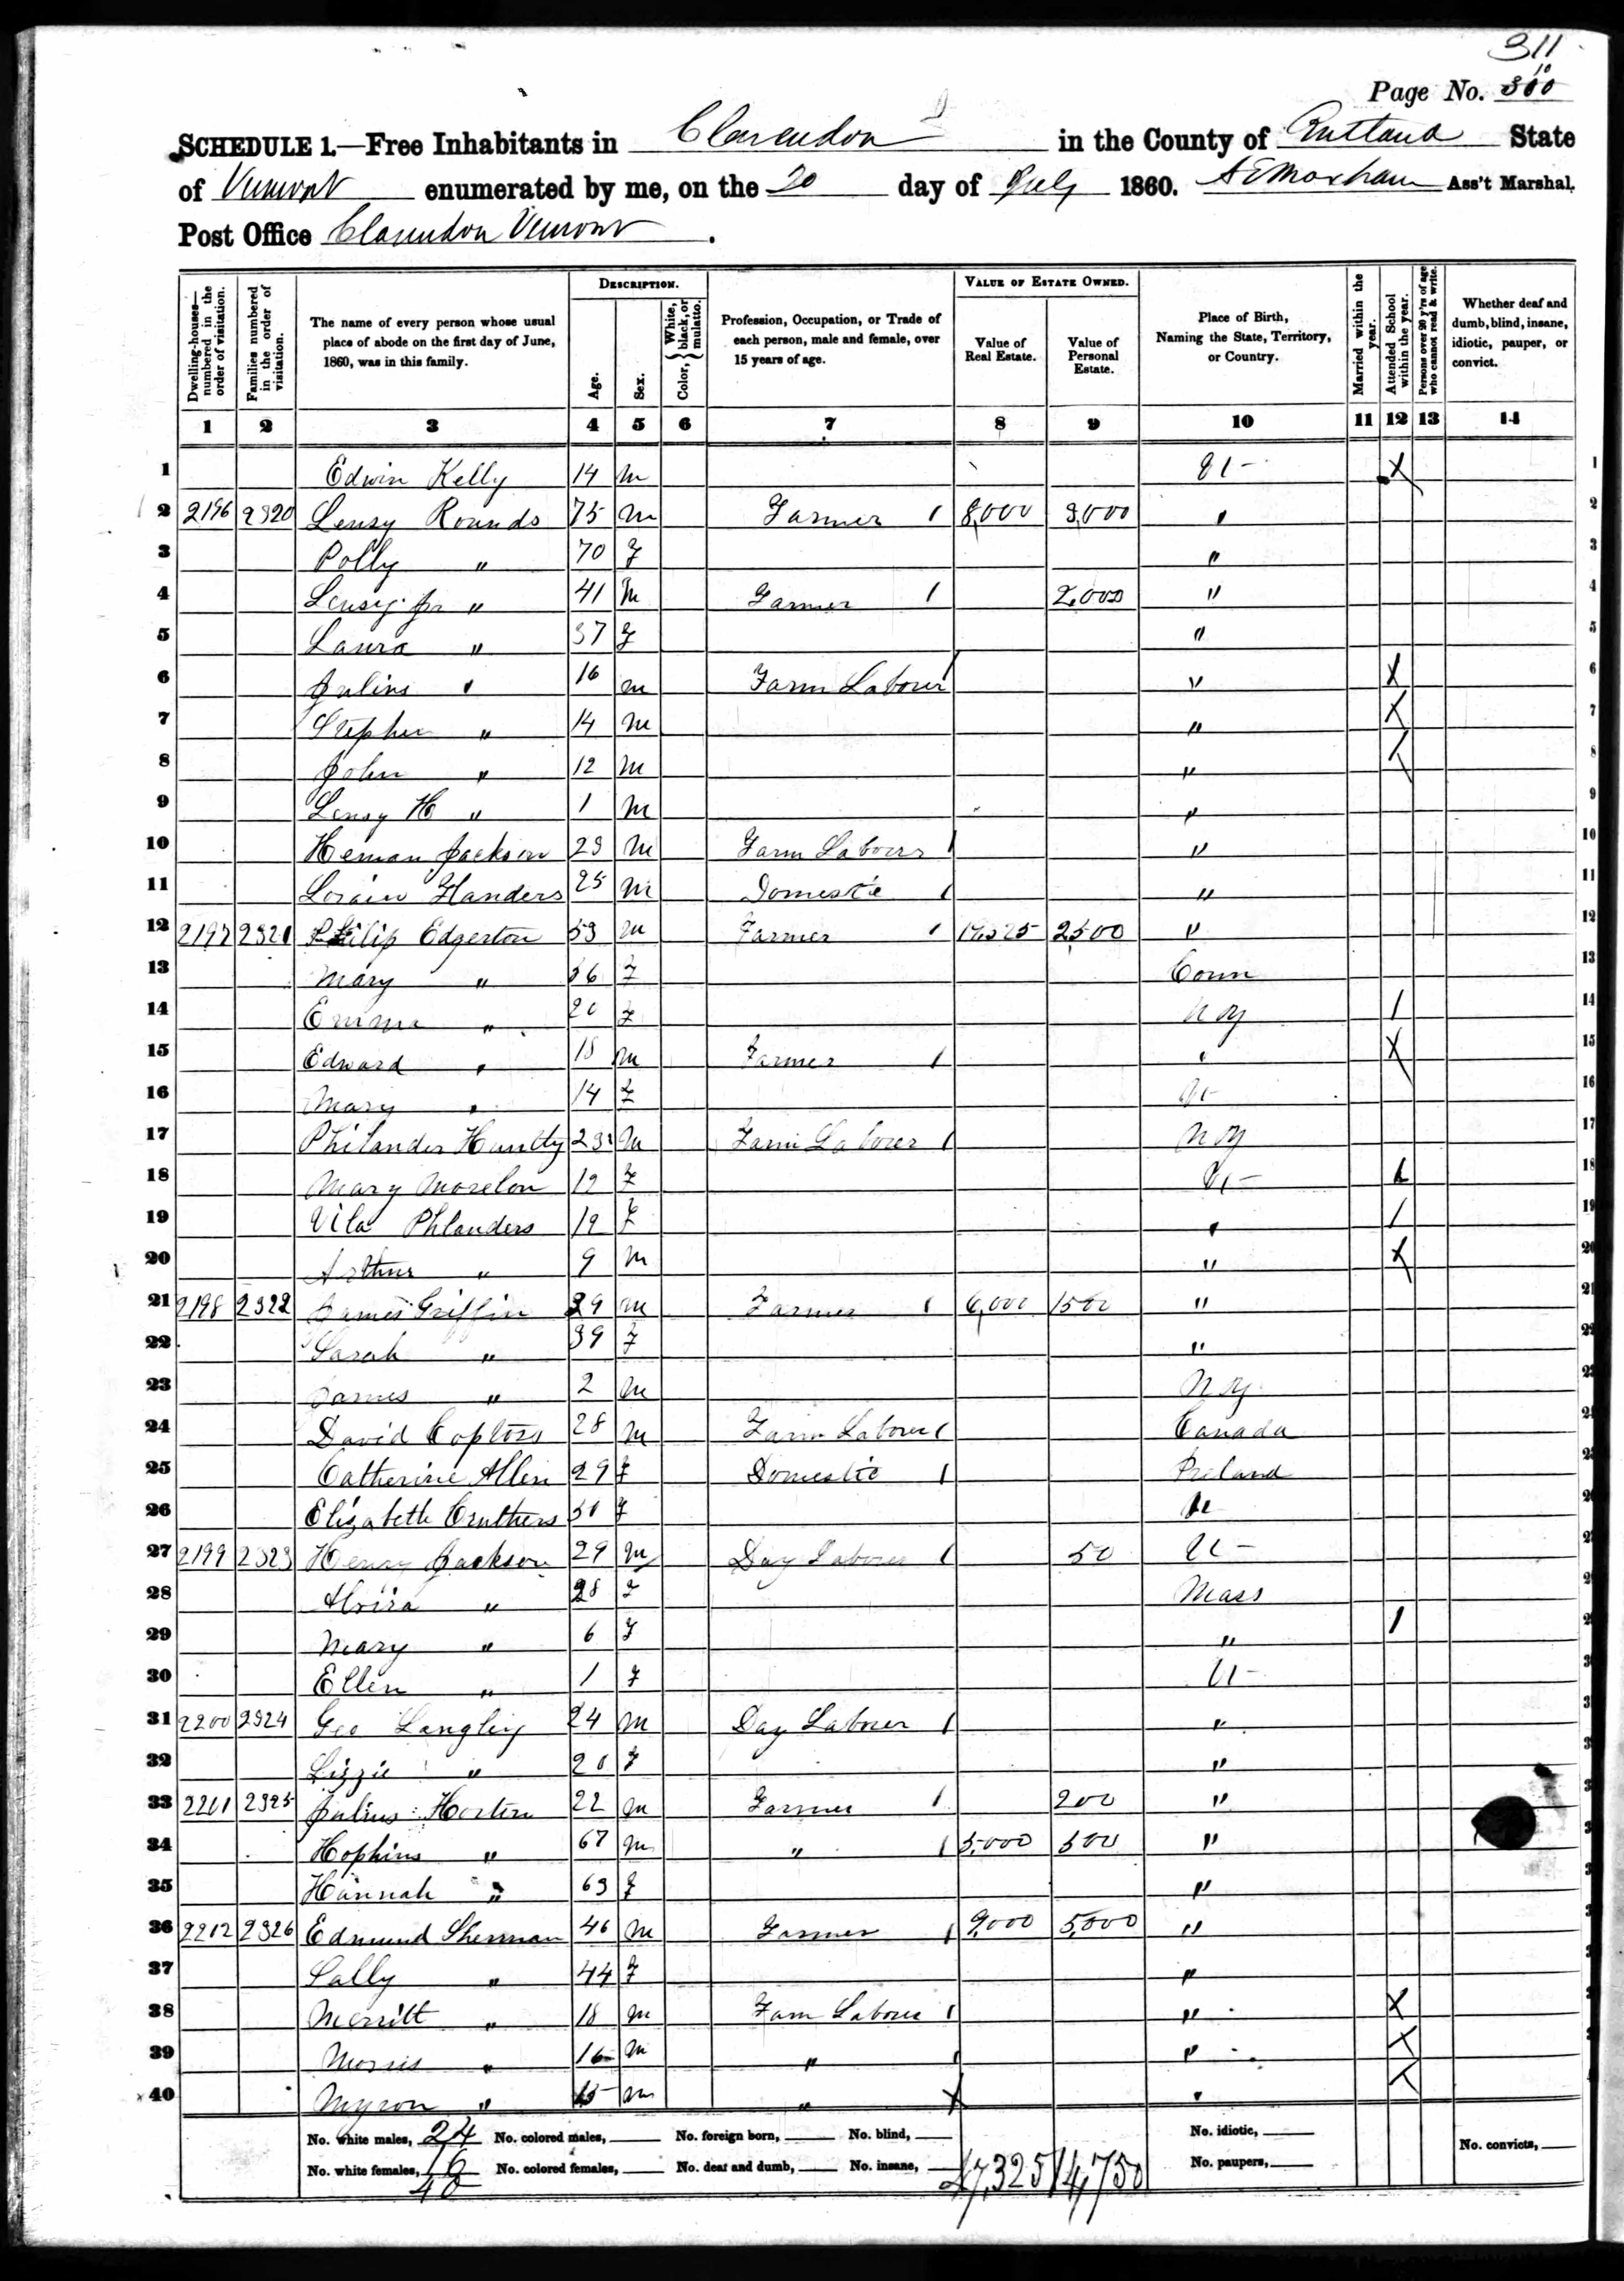 311
10
Page No. 300
SCHEDULE 1.—Free Inhabitants in Clarendon in the County of Rutland State
of Vermont enumerated by me, on the 20 day of July 1860. Ass't Marshal.
Post Office Clarendon Vermont.
Dwelling-houses—numbered in the order of visitation. Families numbered in the order of visitation. The name of every person whose usual place of abode on the first day of June, 1860, was in this family. DESCRIPTION. Age. Sex. Color, { White, black, or mulatto. Profession, Occupation, or Trade of each person, male and female, over 15 years of age. VALUE OF ESTATE OWNED. Value of Real Estate. Value of Personal Estate. Place of Birth, Naming the State, Territory, or Country. Married within the year. Attended School within the year. Persons over 20 y'rs of age who cannot read & write. Whether deaf and dumb, blind, insane, idiotic, pauper, or convict.
1 2 3 4 5 6 7 8 9 10 11 12 13 14
1 Edwin Kelly 14 m Vt- X 1
2 2196 2320 Lensy Rounds 75 m Farmer / 8,000 3,000 " 2
3 Polly " 70 F " 3
4 Lensy Jr " 41 m Farmer / 2,000 " 4
5 Laura " 37 F " 5
6 Julius " 16 m Farm Laborer / " X 6
7 Stephen " 14 m " X 7
8 John " 12 m " X 8
9 Lensy H " 1 m " 9
10 Heman Jackson 23 m Farm Laborer / " 10
11 Flanders 25 m Domestic / " 11
12 2197 2321 Philip Edgerton 53 m Farmer / 2500 " 12
13 Mary " 56 F Conn 13
14 Emma " 20 F N Y / 14
15 Edward " 18 m Farmer / " X 15
16 Mary " 14 F Vt- 16
17 Philander 23 m Farm Laborer / N Y 17
18 Mary 12 F Vt- 18
19 Vila Phlanders 12 F " / 19
20 Arthur " 9 m " X 20
21 2198 2322 James Griffin 39 m Farmer / 6,000 1500 "
22 Sarah " 39 F "
23 James " 2 m N Y
24 David 28 m Farm Laborer / Canada
25 Catherine Allen 29 F Domestic / Ireland
26 Elizabeth Cruthers 50 F Vt
27 2199 2323 Henry Jackson 29 m Day Laborer / 50 Vt-
28 " 28 F Mass
29 Mary " 6 F " /
30 Ellen " 1 F Vt-
31 2200 2324 Geo Langley 24 m Day Laborer / "
32 Lizzie " 20 F "
33 2201 2325 Julius Horton 22 m Farmer / 200 "
34 Hopkins " 67 m " / 5,000 500 "
35 Hannah " 63 F "
36 2202 2326 Edmund Sherman 46 m Farmer / 9,000 5,000 "
37 Sally " 44 F "
38 Merritt " 18 m Farm Laborer / " X
39 Morris " 16 m " / " X
40 Myron " 15 m " X " X
No. white males, 24 No. colored males, No. foreign born, No. blind, No. idiotic, No. convicts,
No. white females, 16 No. colored females, No. deaf and dumb, No. insane, 47,325 14,750 No. paupers,
40